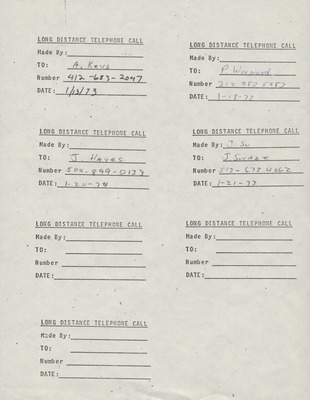 LONG DISTANCE TELEPHONE CALL
Made By:
TO: A. Keys
Number 412-683-2047
DATE: 1/13/73
LONG DISTANCE TELEPHONE CALL
Made By:
TO: P
Number
DATE: 1-18-73
LONG DISTANCE TELEPHONE CALL
Made By:
TO: J. Hayes
Number 504-899-0137
DATE: 1-20-74
LONG DISTANCE TELEPHONE CALL
Made By: J. Su
TO: J.
Number
DATE: 1-21-73
LONG DISTANCE TELEPHONE CALL
Made By:
TO:
Number
DATE:
LONG DISTANCE TELEPHONE CALL
Made By:
TO:
Number
DATE:
LONG DISTANCE TELEPHONE CALL
Made By:
TO:
Number
DATE: